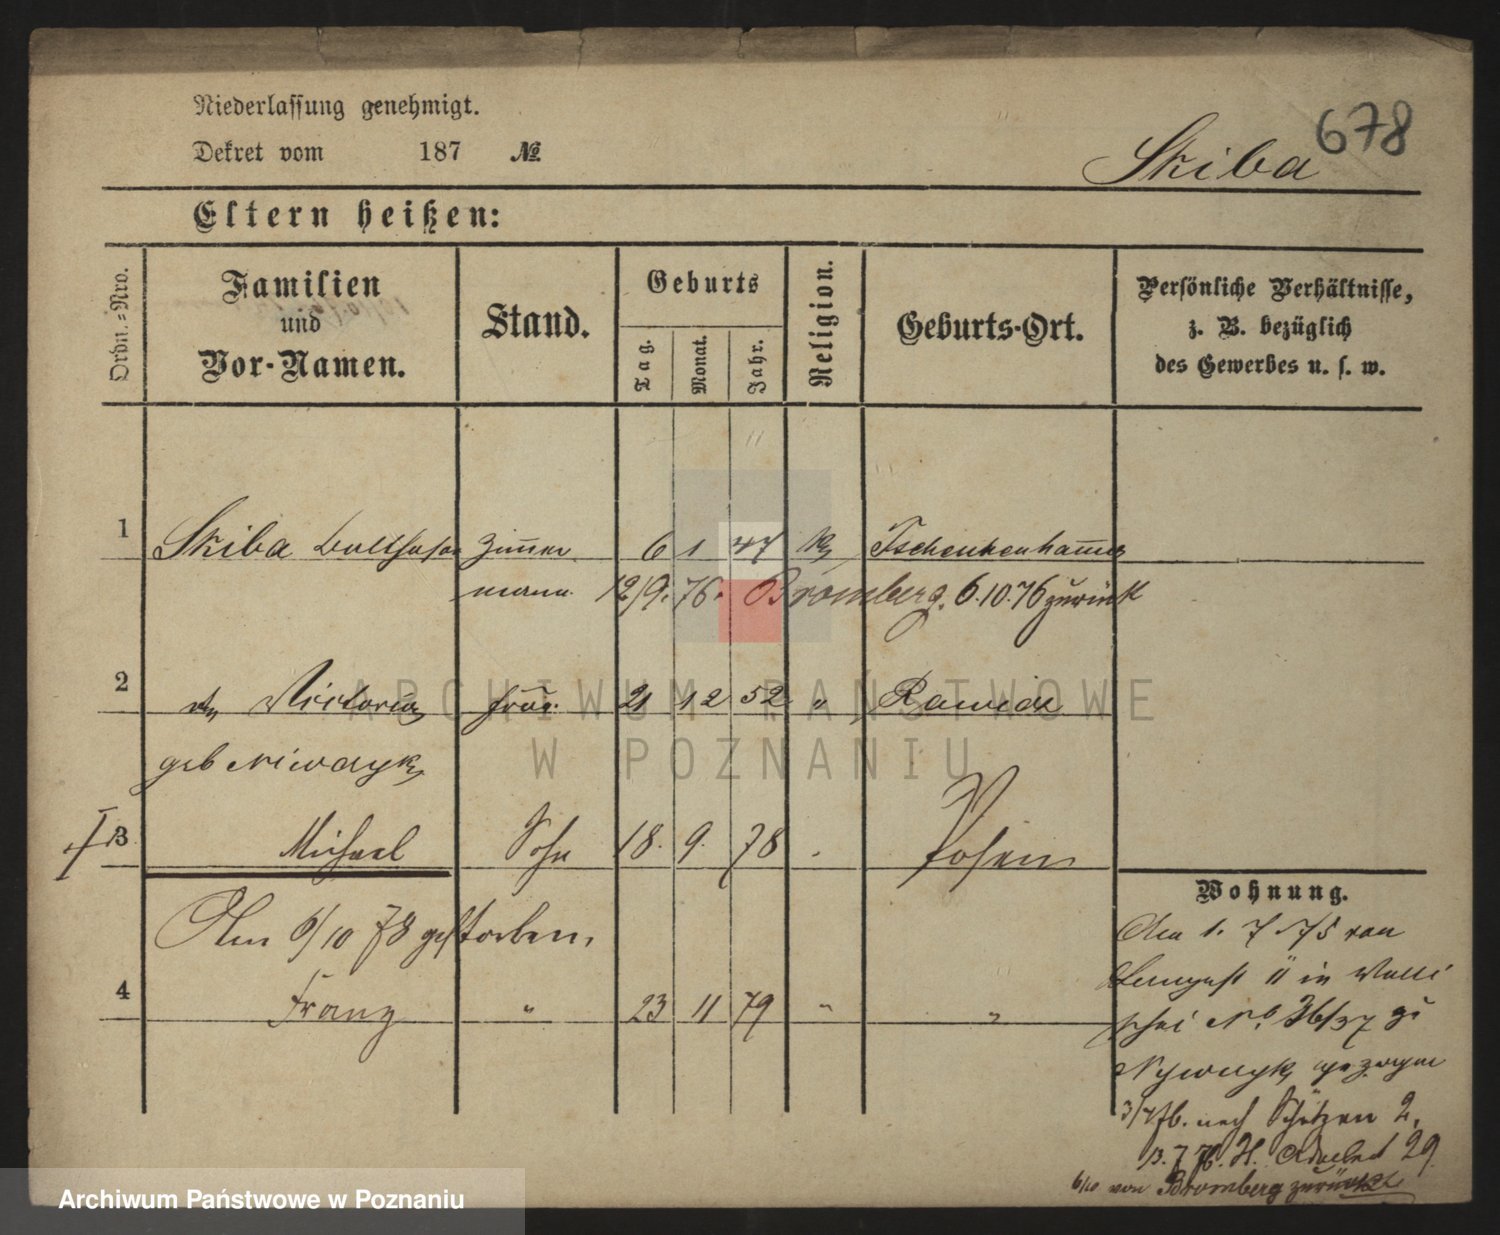 Niederlassung genehmigt.
678
Dekret vom 187 №
Skiba
Eltern heißen:
Ordn.=Nro.
Familien
und
Vor-Namen.
Stand.
Geburts
Tag.
Monat.
Jahr.
Religion.
Geburts-Ort.
Persönliche Verhältnisse,
z. B. bezüglich
des Gewerbes u. s. w.
1 Skiba Balthasar Zimmer 6 1 47 k
mann 12/9. 76. Bromberg. 6.10.76 zurück
2 Victoria Frau 21 12 52 " Rawicz
geb
3 Michael Sohn 18. 9. 78 Posen
Wohnung.
Am 6/10 78 gestorben.
Den 1. 7. 75 von
in Walli
4 Franz " 23 11 79 " "
schei No. 36/37 zu
gezogen
3/4 76. nach Schützen 2.
13. 7. 76. H. Adalbert 29
6/10 von Bromberg zurück
ARCHIWUM PAŃSTWOWE
W POZNANIU
Archiwum Państwowe w Poznaniu